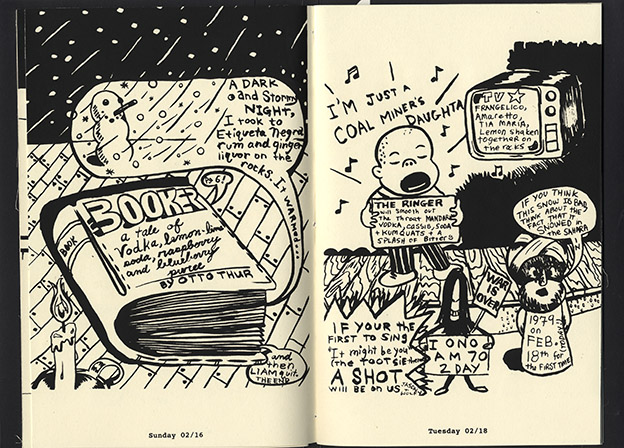 A DARK
and Stormy
NIGHT,
I took to
Etiqueta Negra
rum and ginger
liquor on the
rocks. It warmed...
Pg 67
BOOKER
a tale of
Vodka, lemon-lime
soda, raspberry
and blueberry
puree
BY OTTO THUR
BOOK
and
then
LIAM quit.
THE END
Sunday 02/16
I'M JUST A
COAL MINER'S
DAUGHTA
TV ★
FRANGELICO,
Amaretto,
TIA MARIA,
Lemon shaken
together on
the rocks
THE RINGER
will smooth out
the throat MANDARIN
VODKA, CASSIS, SODA
+ KUMQUATS + A
SPLASH OF Bitters
IF YOU THINK
THIS SNOW IS BAD
THINK ABOUT THE
FACT THAT IT
SNOWED IN
the SAHARA
WAR
IS
OVER
IF YOUR THE
FIRST TO SING
"It might be you"
(the TOOTSIE theme)
A SHOT
will BE ON US
I ONO
AM 70
2 DAY
1979
on
FEB.
18th for
the FIRST TIME
Tuesday 02/18